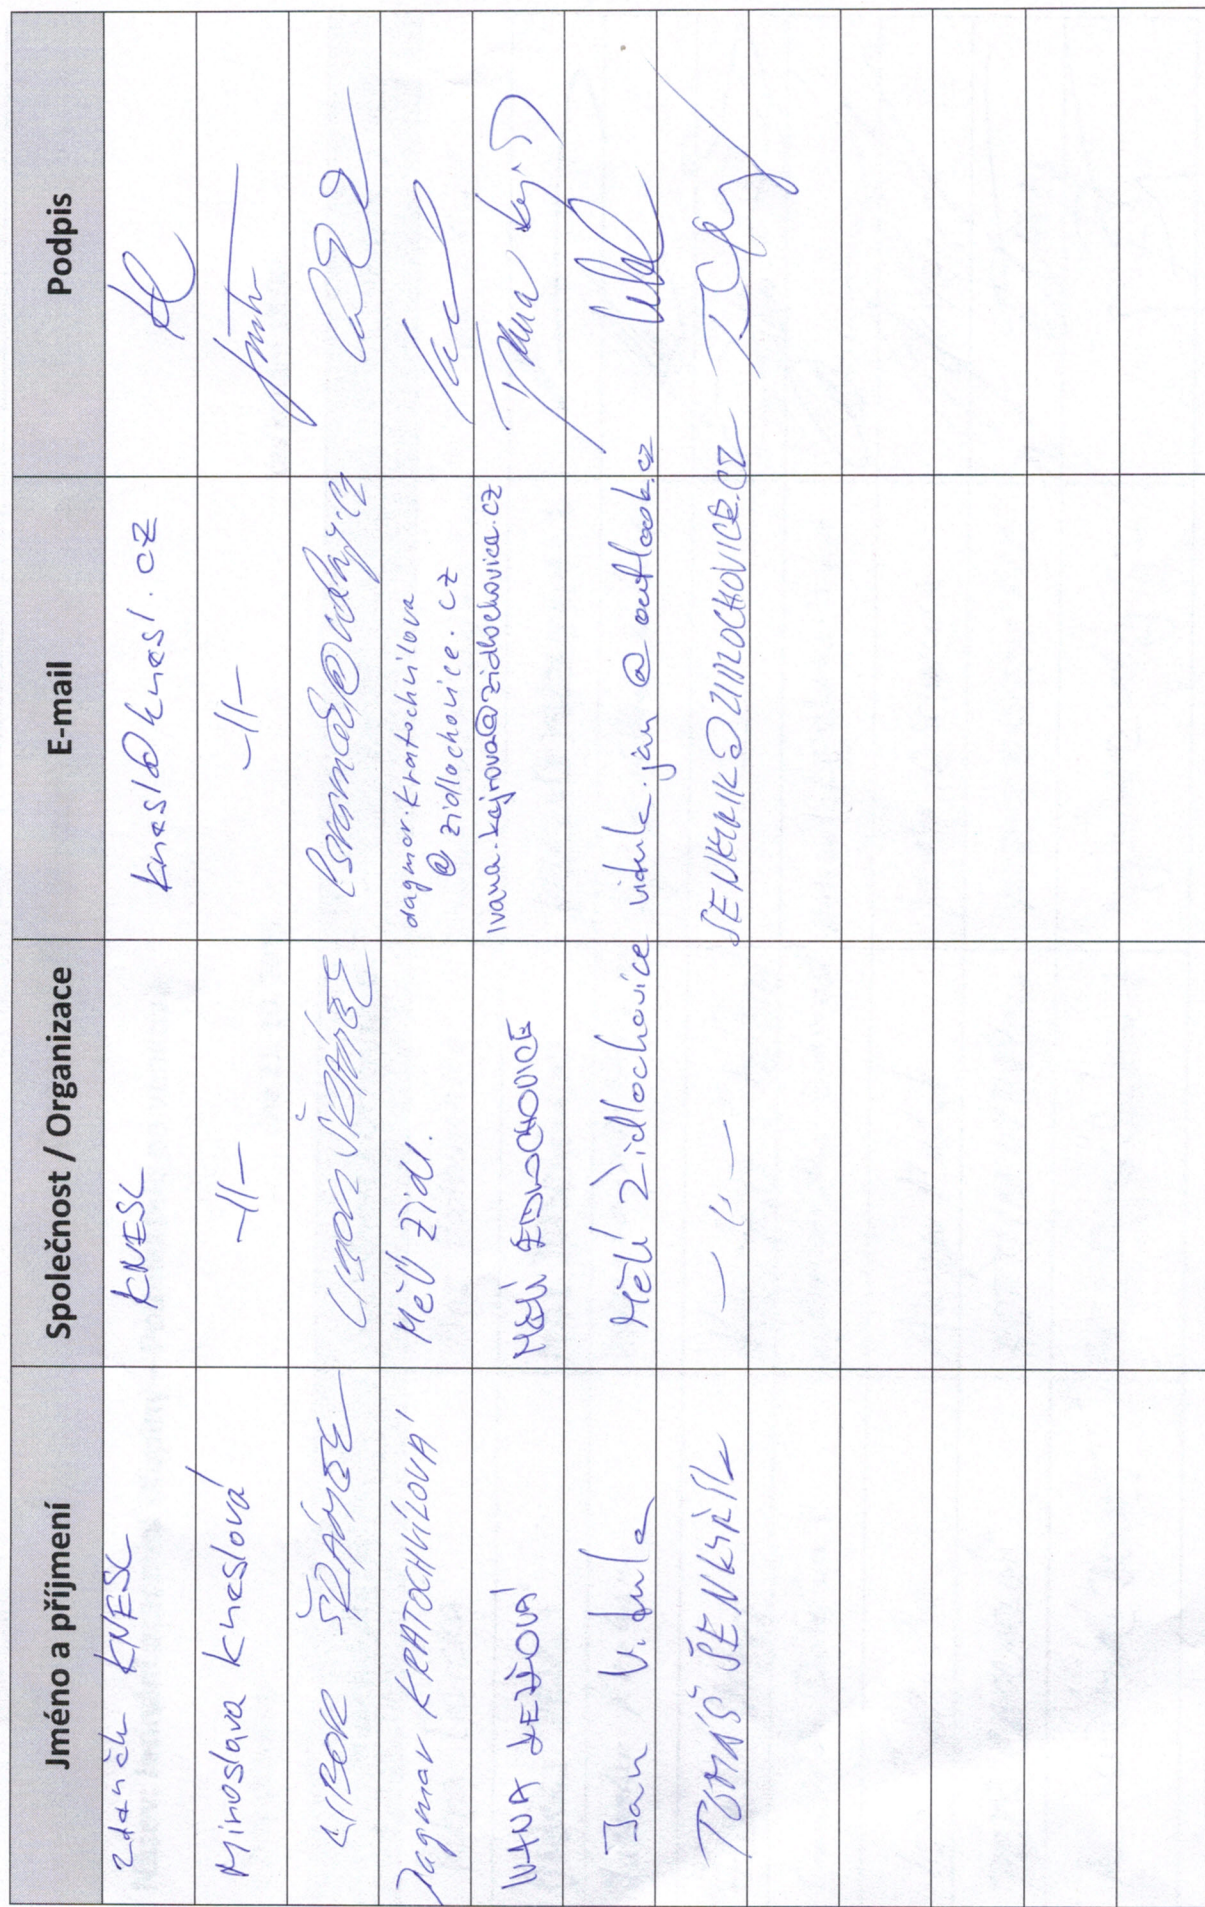 Jméno a příjmení Společnost / Organizace E-mail Podpis
Zdeněk KNESL KNESL knesl@knesl.cz
Miroslava Kneslová -//- -//-
LIBOR ŠRÁMEK LIBOR ŠRÁMEK
Dagmar KRATOCHVÍLOVÁ MěÚ Židl. dagmar.kratochvilova
@zidlochovice.cz
IVANA MěÚ ŽIDLOCHOVICE ivana.kejrova@zidlochovice.cz
Jan Vitula MěÚ Židlochovice vitula.jan@outlook.cz
TOMÁŠ ŠENKYŘÍK -//- SENKYRIK@ZIDLOCHOVICE.CZ